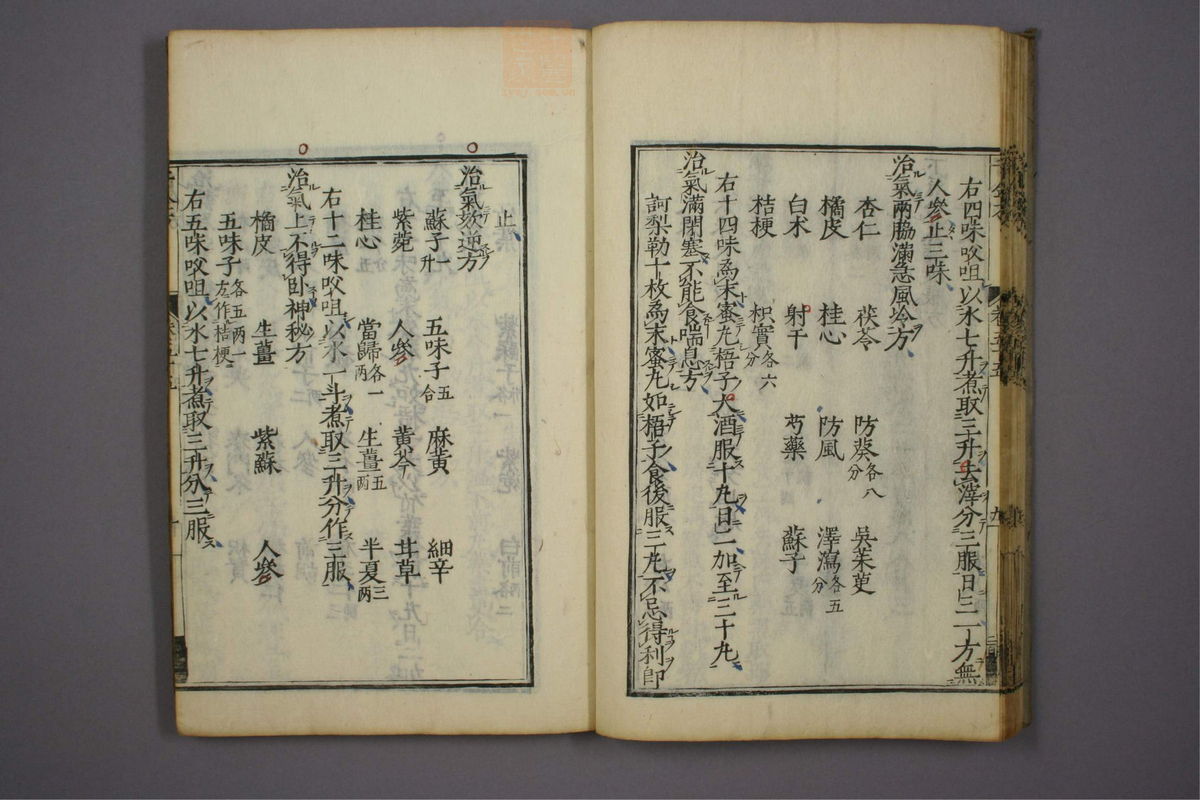 右四味㕮咀以水七升煮取三升去滓分三服日三一方無
人參止三味
治氣兩脇滿急風冷方
杏仁 茯苓 防葵各八分 吳茱萸
橘皮 桂心 防風 澤瀉各五分
白朮 射干 芍藥 蘇子
桔梗 枳實各六分
右十四味為末蜜丸梧子大酒服十丸日二加至三十丸
治氣滿閉塞不能食喘息方
訶梨勒十枚為末蜜丸如梧子食後服三丸不忌得利即
止
治氣欬逆方
蘇子一升 五味子五合 麻黃 細辛
紫菀 人參 黃芩 甘草
桂心 當歸各一兩 生薑五兩 半夏三兩
右十二味㕮咀以水一斗煮取三升分作三服
治氣上不得臥神秘方
橘皮 生薑 紫蘇 人參
五味子各五兩一左作桔梗
右五味㕮咀以水七升煮取三升分三服